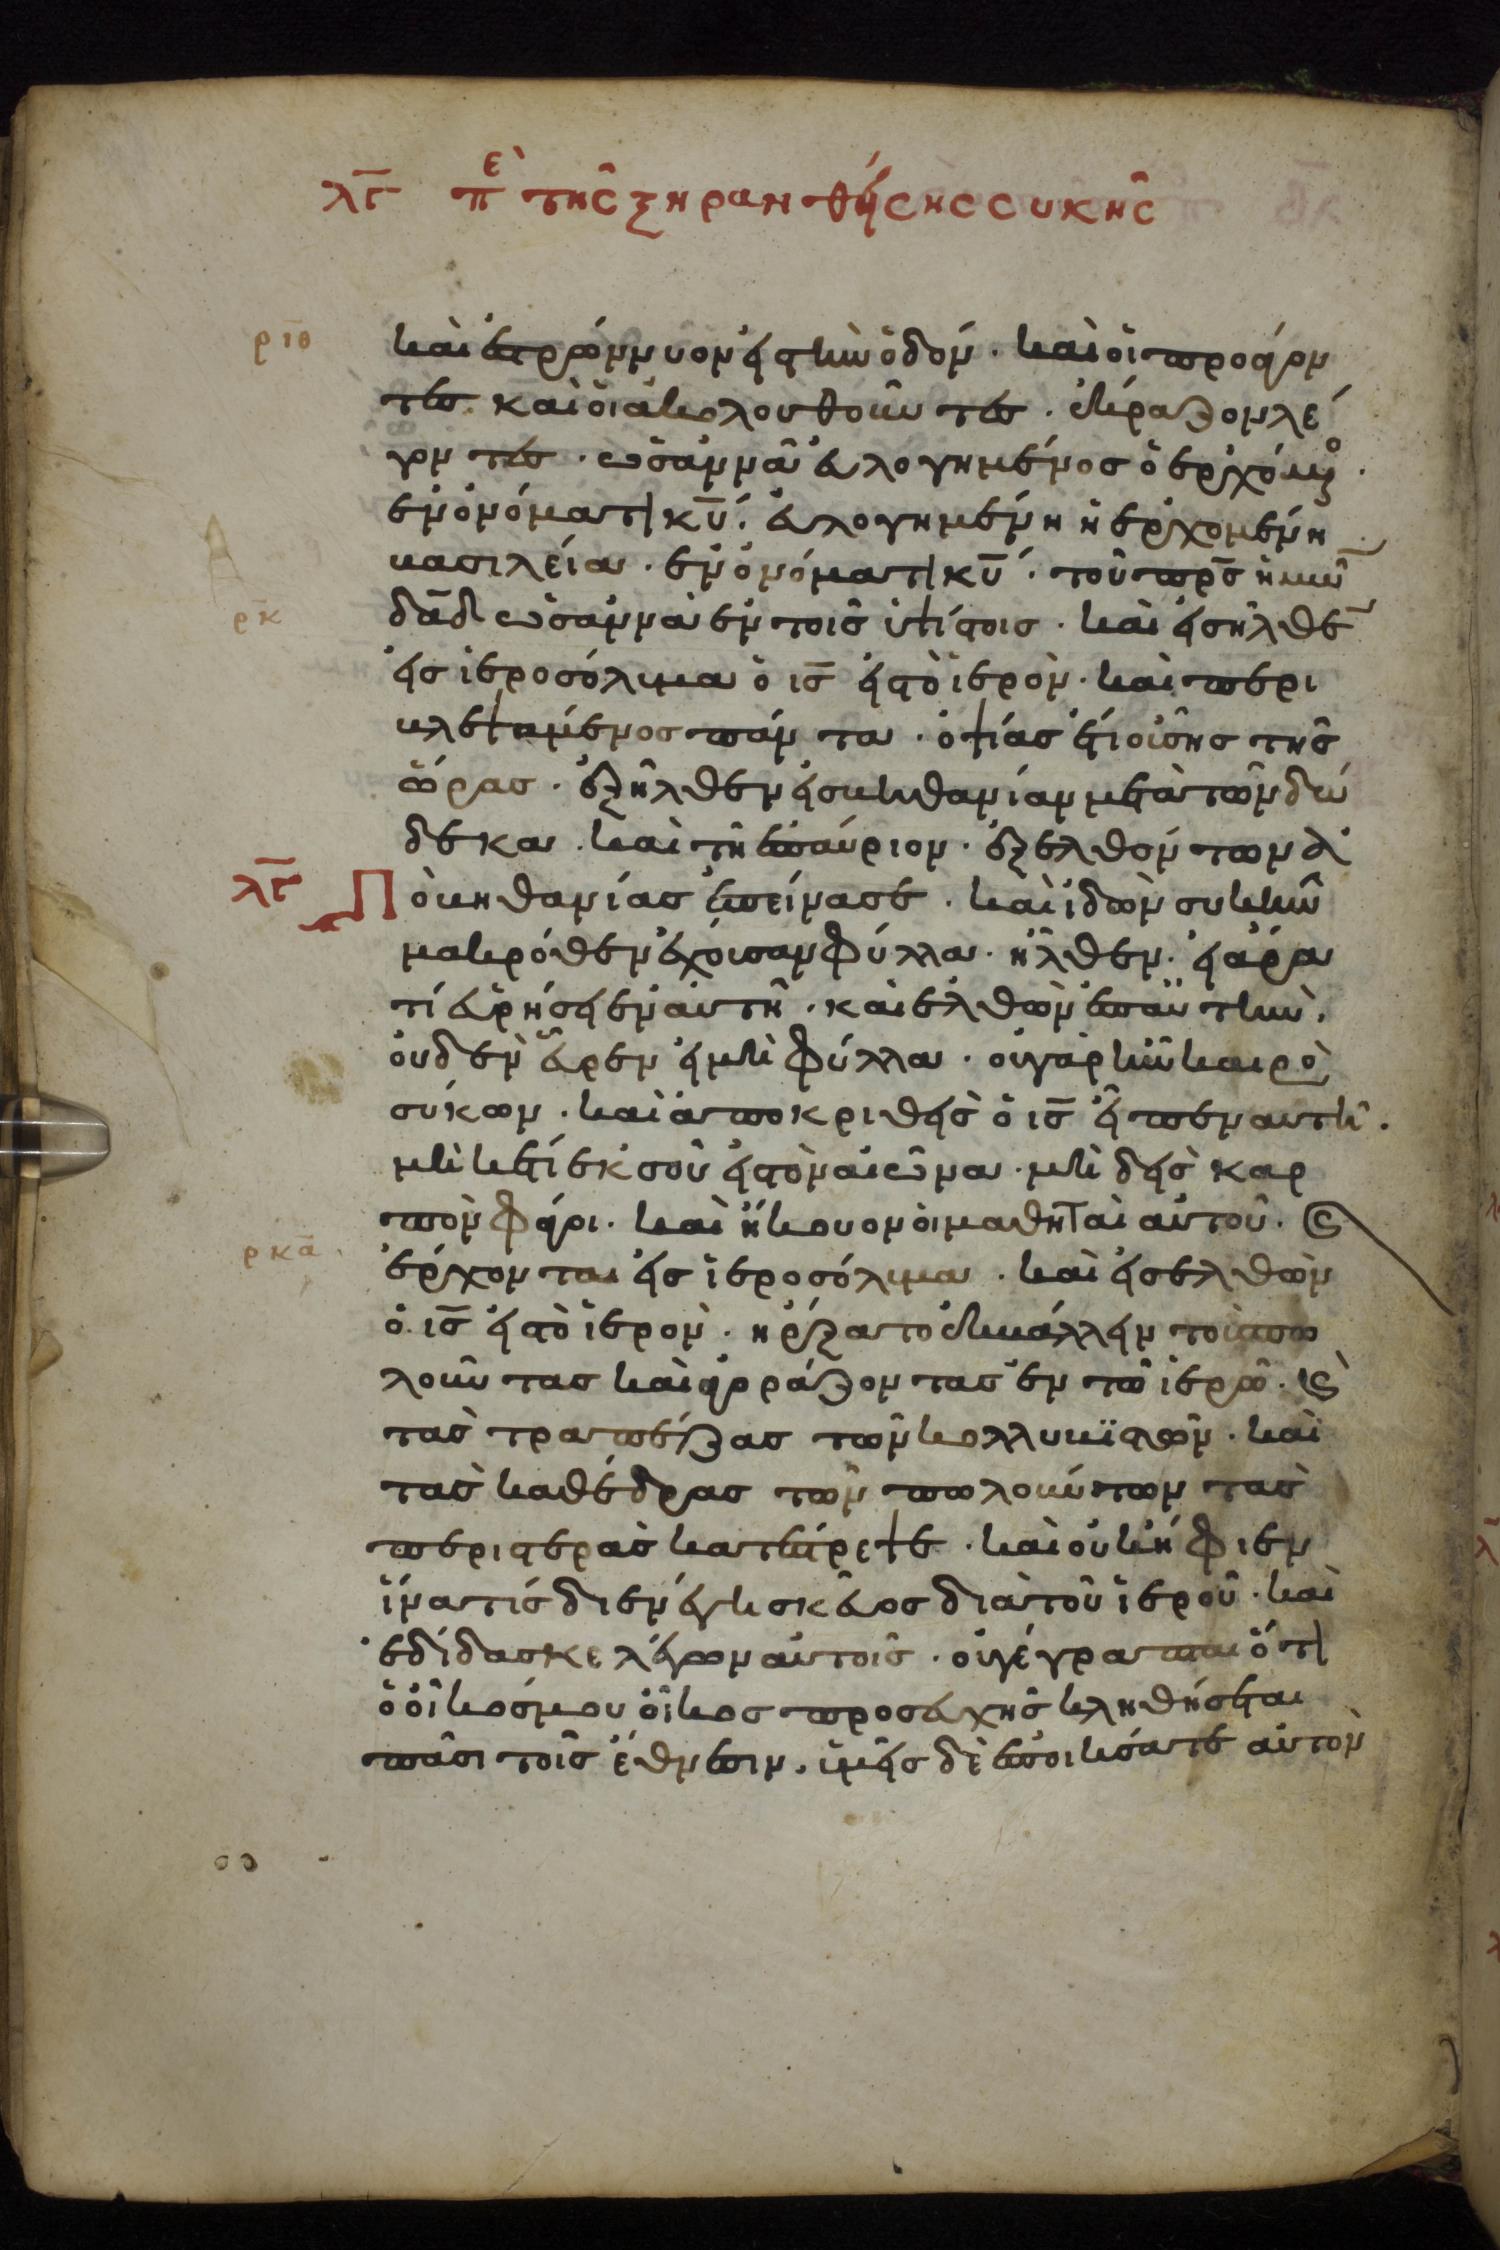 λγ πε τῆς ξηρανθήσης συκῆς
ριθ καὶ ἐστρώμνυον εἰς τὴν ὁδόν · καὶ οἱ προάγον
τες καὶ οἱ ἀκολουθοῦντες · ἔκραζον λέ
γοντες · ὡσαννὰ εὐλογημένος ὁ ἐρχόμενο ·
ἐν ὀνόματι κυ · εὐλογημένη ἡ ἐρχομένη
βασιλεία · ἐν ὀνόματι κυ · τοῦ πρς ἡμῶν
ρκ δαδ ὡσαννὰ ἐν τοῖς ὑψίστοις · καὶ εἰσῆλθεν
εἰς ἱεροσόλυμα ὁ ις εἰς τὸ ἱερὸν · καὶ περι
βλεψάμενος πάντα · ὀψίας ἤδη οὔσης τῆς
ὥρας · ἐξῆλθεν εἰς βηθανίαν μετὰ τῶν δώ
δεκα · καὶ τῆ ἐπαύριον · ἐξελθόντων ἀ
λγ πὸ βηθανίας ἐπείνασε · καὶ ἰδὼν συκῆν
μακρόθεν ἔχουσαν φύλλα · ἦλθεν · εἰ ἄρα
τί εὑρήσει ἐν αὐτῆ · καὶ ἐλθὼν ἐπ αὐτὴν ·
οὐδὲν εὗρεν εἰ μὴ φύλλα · οὐ γὰρ ἦν καιρὸ
σύκων · καὶ ἀποκριθεὶς ὁ ις εἶπεν αὐτῆ ·
μηκέτι ἐκ σοῦ εἰς τὸν αἰῶνα · μηδεὶς καρ
πὸν φάγοι · καὶ ἤκουον οἱ μαθηταὶ αὐτοῦ · ϗ
ρκα ἔρχονται εἰς ἱεροσόλυμα · καὶ εἰσελθὼν
ὁ ις εἰς τὸ ἱερὸν · ἤρξατο ἐκβάλλειν τοὺς πω
λοῦντας καὶ ἀγοράζοντας ἐν τῶ ἱερῶ · ϗ
τὰς τραπέζας τῶν κολλυβιστῶν · καὶ
τὰς καθέδρας τῶν πωλούντων τὰς
περιστερὰς κατέστρεψε · καὶ οὐκ ἤφιεν
ἵνα τίς διενέγκη σκεῦος διὰ τοῦ ἱεροῦ · καὶ
ἐδίδασκε λέγων αὐτοῖς · οὐ γέγραπται ὅτι
ὁ οἶκός μου οἶκος προσευχῆς κληθήσεται
πᾶσι τοῖς ἔθνεσιν · ὑμεῖς δὲ ἐποιήσατε αὐτὸν